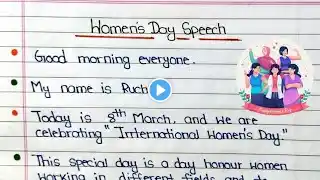 Women's Day Speech
Good morning everyone.
My name is Ruch
Today is 8th March, and we are
celebrating "Irrternational Women's Day."
This special day is a day honour women
working in different fields and